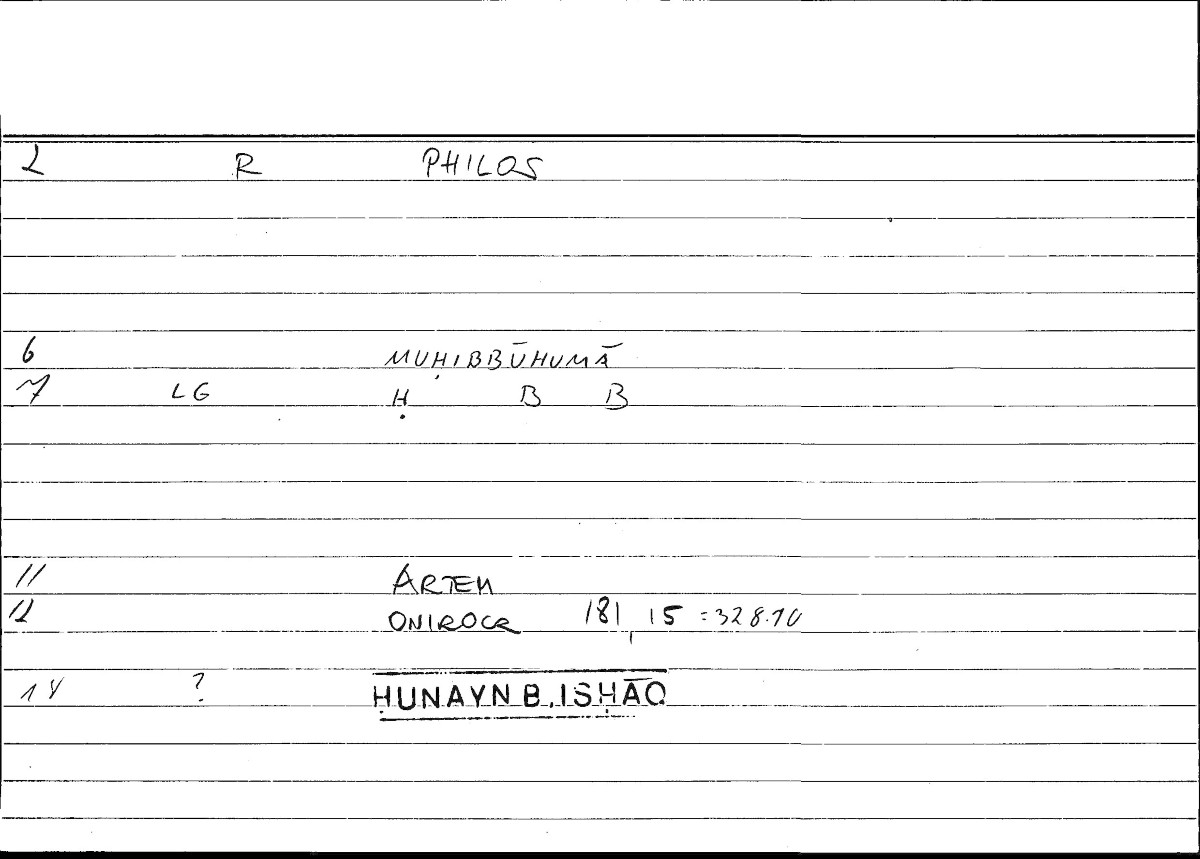 2 R PHILOS
6 MUḤIBBŪHUMĀ
7 LG Ḥ B B
11 ARTEM
12 ONIROCR 181,15 =328.10
14 ? ḤUNAYN B. ISḤĀQ